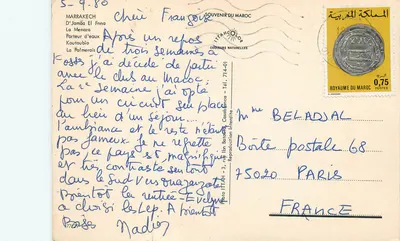 5-9.80
MARRAKECH
D'Jamâa El Fnaa
La Menara
Porteur d'eaux
Koutoubia
La Palmeraie
SOUVENIR DU MAROC
Cher François
Après un repos
de trois semaines à
j'ai décidé de partir
avec le club au Maroc.
La 2e semaine j'ai opté
pour un circuit sur place
au lieu d'un séjour...
l'ambiance et le reste étant
pas fameux. Je ne regrette
pas, ce pays est magnifique
et très contraste surtout
dans le sud vers Ouarzazate
Bientôt la rentrée - Evelyne
a choisi les lep. A bientôt
Nadia
COULEURS NATURELLES
Reproduction interdite
المملكة المغربية
0,75
POSTES
ROYAUME DU MAROC
Mme BELADJAL
Boîte postale 68
75020 PARIS
FRANCE